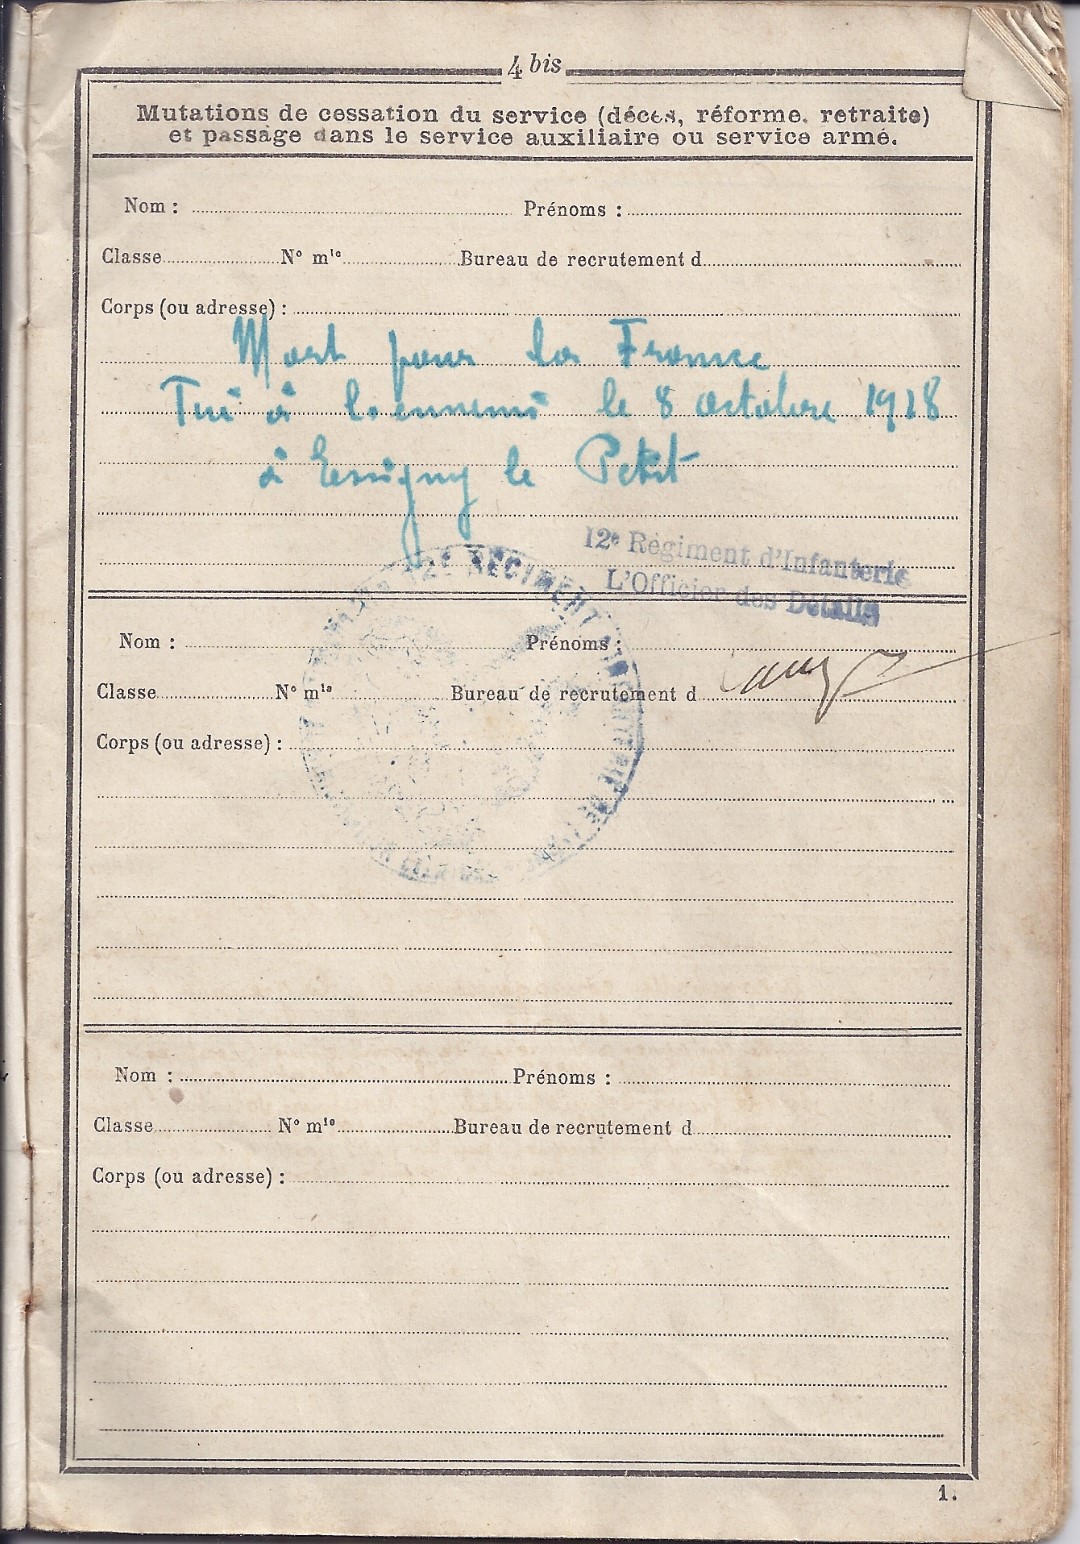 4 bis
Mutations de cessation du service (décès, réforme, retraite)
et passage dans le service auxiliaire ou service armé.
Nom : Prénoms :
Classe N° mle Bureau de recrutement d
Corps (ou adresse) :
Mort pour la France
Tué à l'ennemi le 8 octobre 1918
à Essigny le Petit
12e Régiment d'Infanterie
L'Officier des Détails
12E REGIMENT D'INFANTERIE DE
Nom : Prénoms :
Classe N° mle Bureau de recrutement d
Corps (ou adresse) :
Nom : Prénoms :
Classe N° mle Bureau de recrutement d
Corps (ou adresse) :
1.